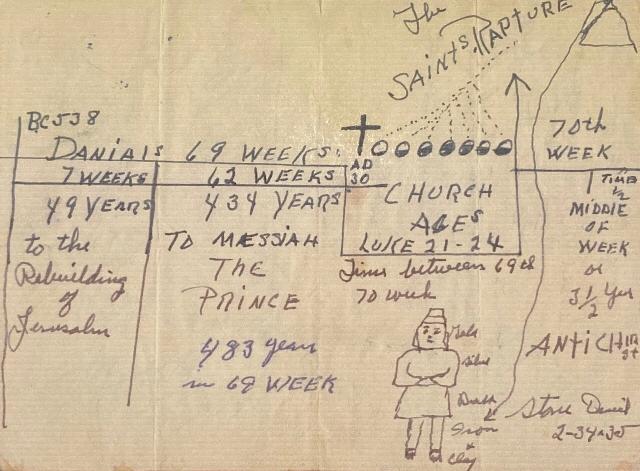 The
SAINTS RAPTURE
BC 538
DANIALS 69 WEEKS.
7 WEEKS
62 WEEKS
AD
30
49 YEARS
434 YEARS
to the
Rebuilding
of
Jerusalm
TO MÆSSIAH
THE
PRINCE
483 years
in 69 WEEK
CHURCH
AGES
LUKE 21-24
Times between 69th
70 week
70th
WEEK
TIME
1/2
MIDDLE
OF
WEEK
or
3 1/2 Yrs
ANTICHIRst
Gold
Silve
Brass
Iron
&
Clay
Stone Daniel
2-34+35